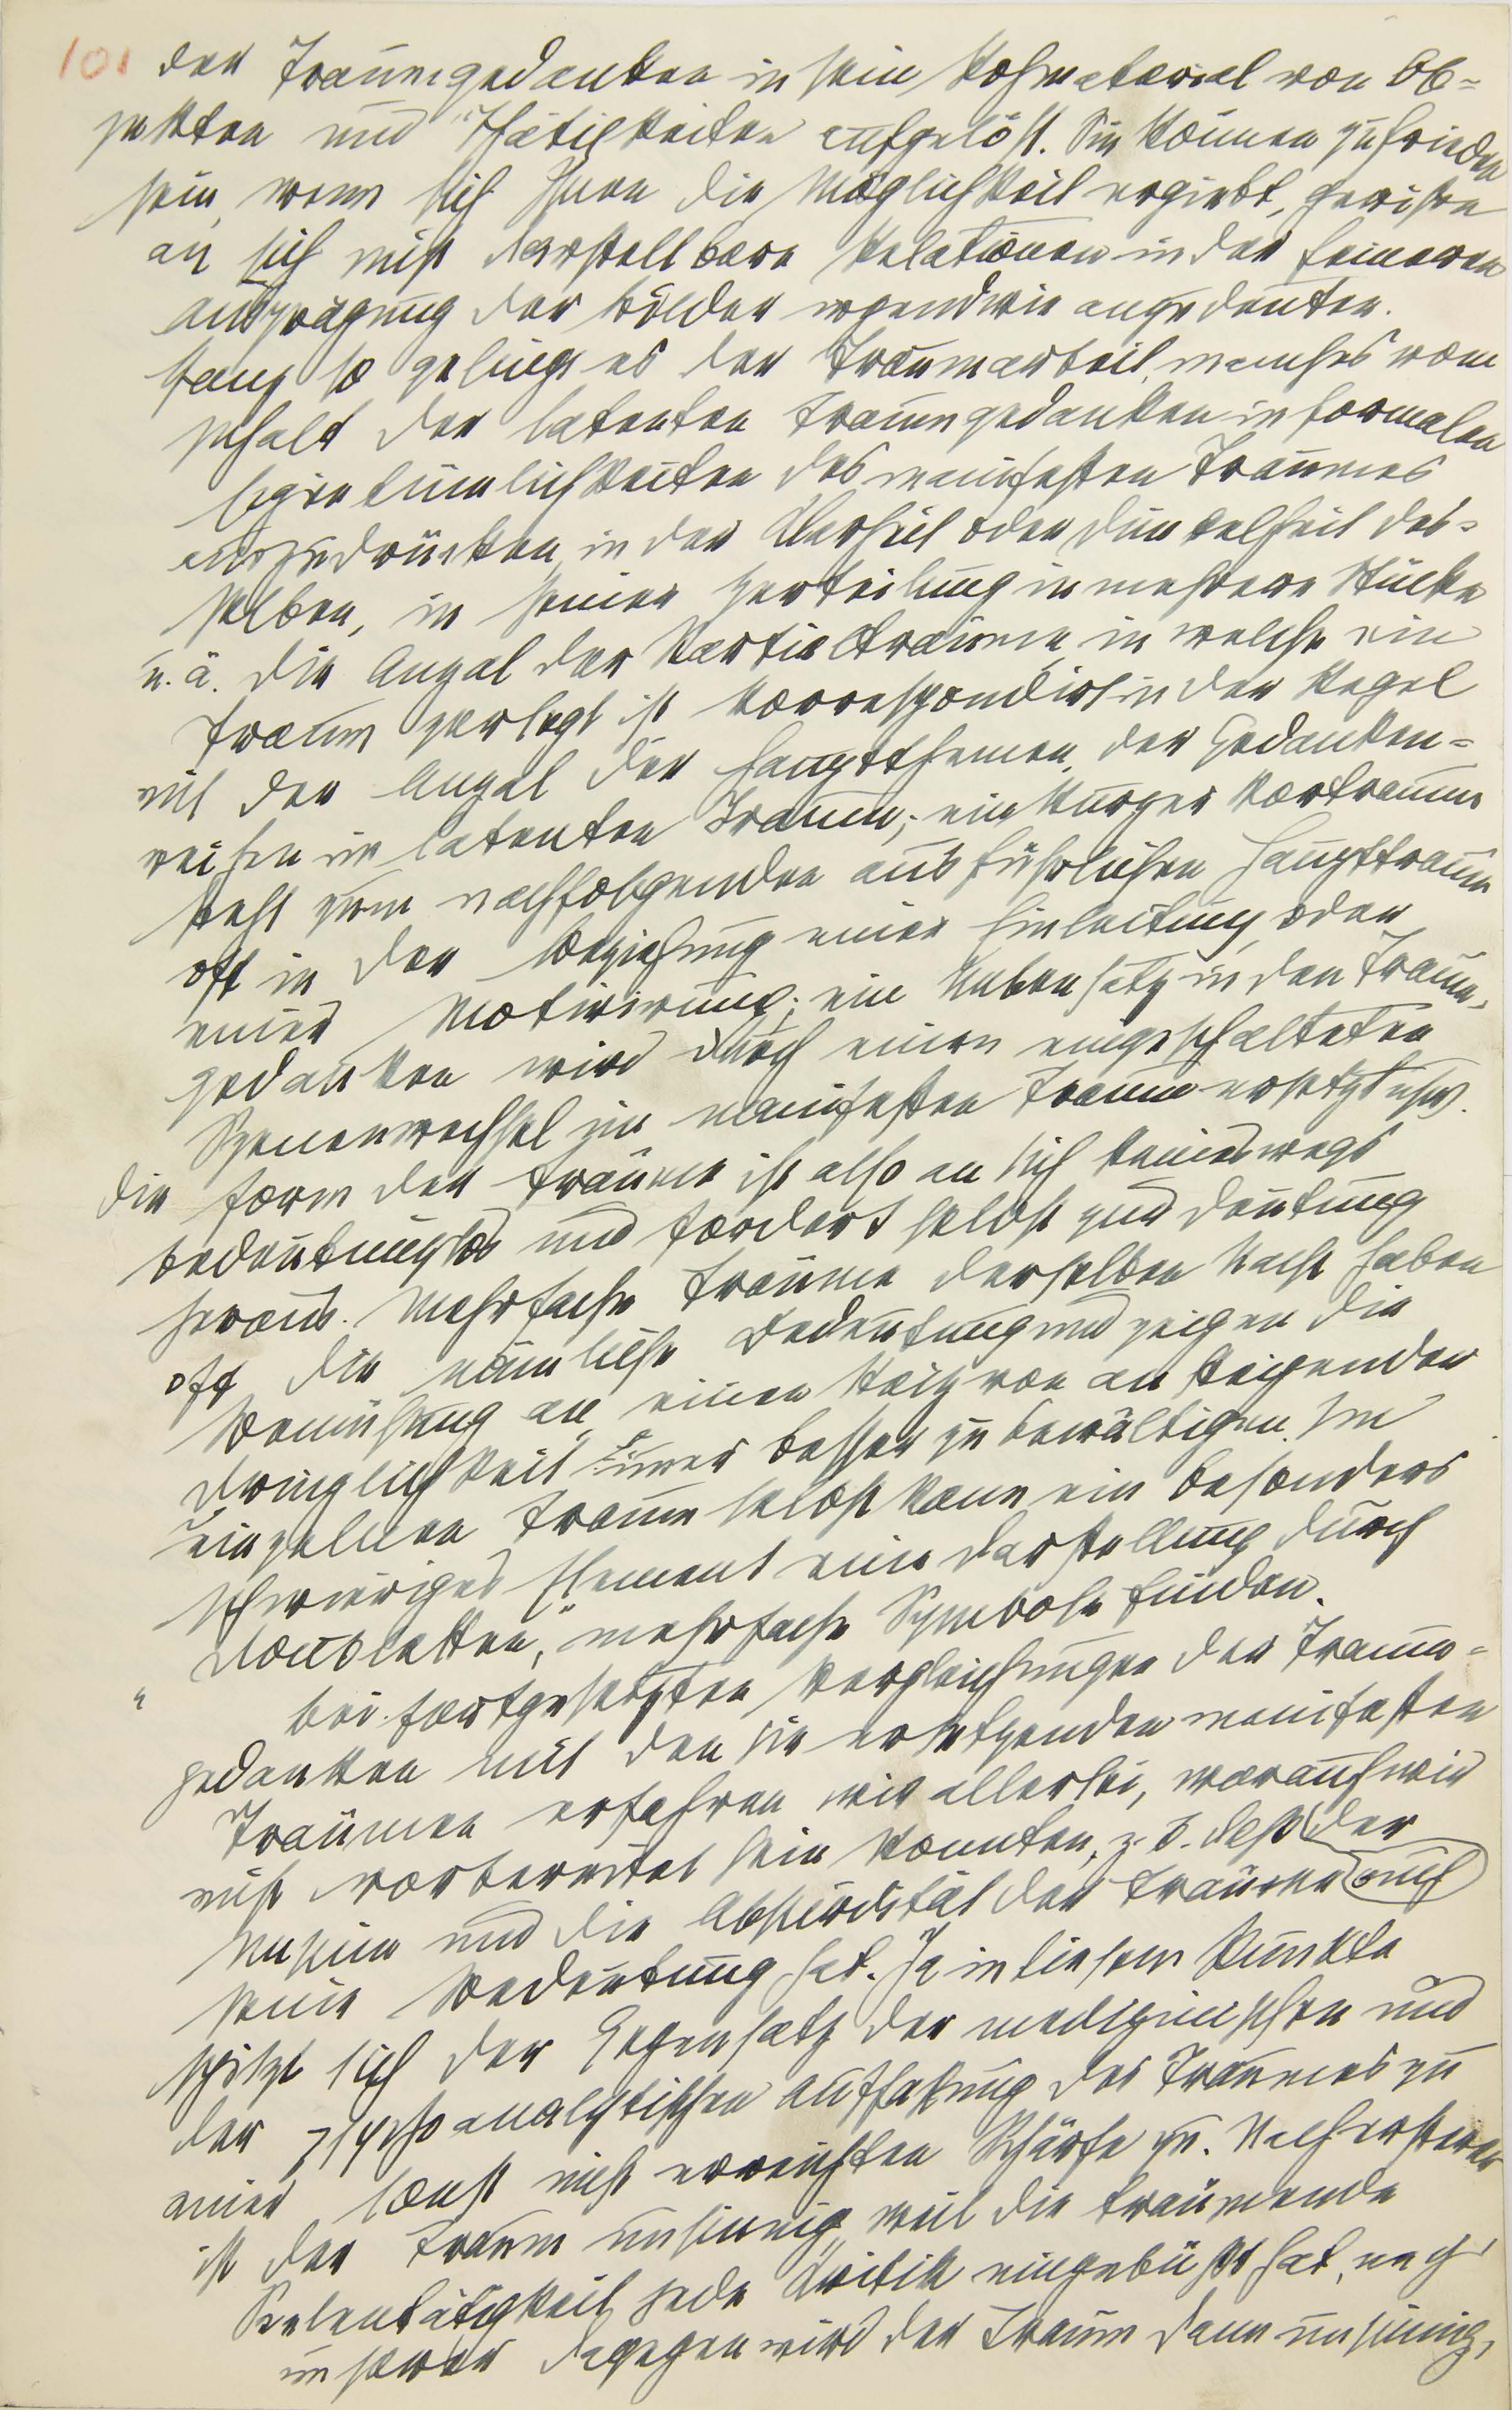 101 der Traumgedanken in sein Rohmaterial von Ob-
jekten und Thätigkeiten aufgelöst. Sie können zufrieden
sein, wenn sich Ihnen die Möglichkeit ergiebt, gewisse
an sich nicht darstellbare Relationen in der feineren
Ausprägung der Bilder irgendwie anzudeuten.
Ganz so gelingt es der Traumarbeit, manches vom
Inhalt der latenten Traumgedanken in formalen
Eigentümlichkeiten des manifesten Traumes
auszudrücken, in der Klarheit oder Dunkelheit des-
selben, in seiner Zerteilung in mehrere Stücke
u. ä. Die Anzal der Partialträume, in welche ein
Traum zerlegt ist korrespondirt in der Regel
mit der Anzal der Hauptthemen, der Gedanken-
reihen im latenten Traum; ein kurzer Vortraum
steht zum nachfolgenden ausführlichen Haupttraum
oft in der Beziehung einer Einleitung oder
einer Motivirung; ein Nebensatz in den Traum-
gedanken wird durch einen eingeschalteten
Szenenwechsel im manifesten Traum ersetzt usw.
Die Form der Träume ist also an sich keineswegs
bedeutungslos und fordert selbst zur Deutung
heraus. Mehrfache Träume derselben Nacht haben
oft die nämliche Bedeutung und zeigen die
Bemühung an, einen Reiz von ansteigender
Dringlichkeit immer besser zu bewältigen. Im
einzelnen Traum selbst kann ein besonders
schwieriges Element eine Darstellung durch
„Doubletten", mehrfache Symbole finden.
Bei fortgesetzten Vergleichungen der Traum-
gedanken mit den sie ersetzenden manifesten
Träumen erfahren wir allerlei, worauf wir
nicht vorbereitet sein konnten, z. B. daß der
Unsinn und die Absurdität der Träume auch
seine Bedeutung hat. Ja in diesem Punkte
spitzt sich der Gegensatz der medizinischen und
der psychoanalytischen Auffassung des Traumes zu
einer sonst nicht erreichten Schärfe zu. Nach ersterer
ist der Traum unsinnig, weil die träumende
Seelentätigkeit jede Kritik eingebüßt hat, nach
unserer dagegen wird der Traum dann unsinnig,